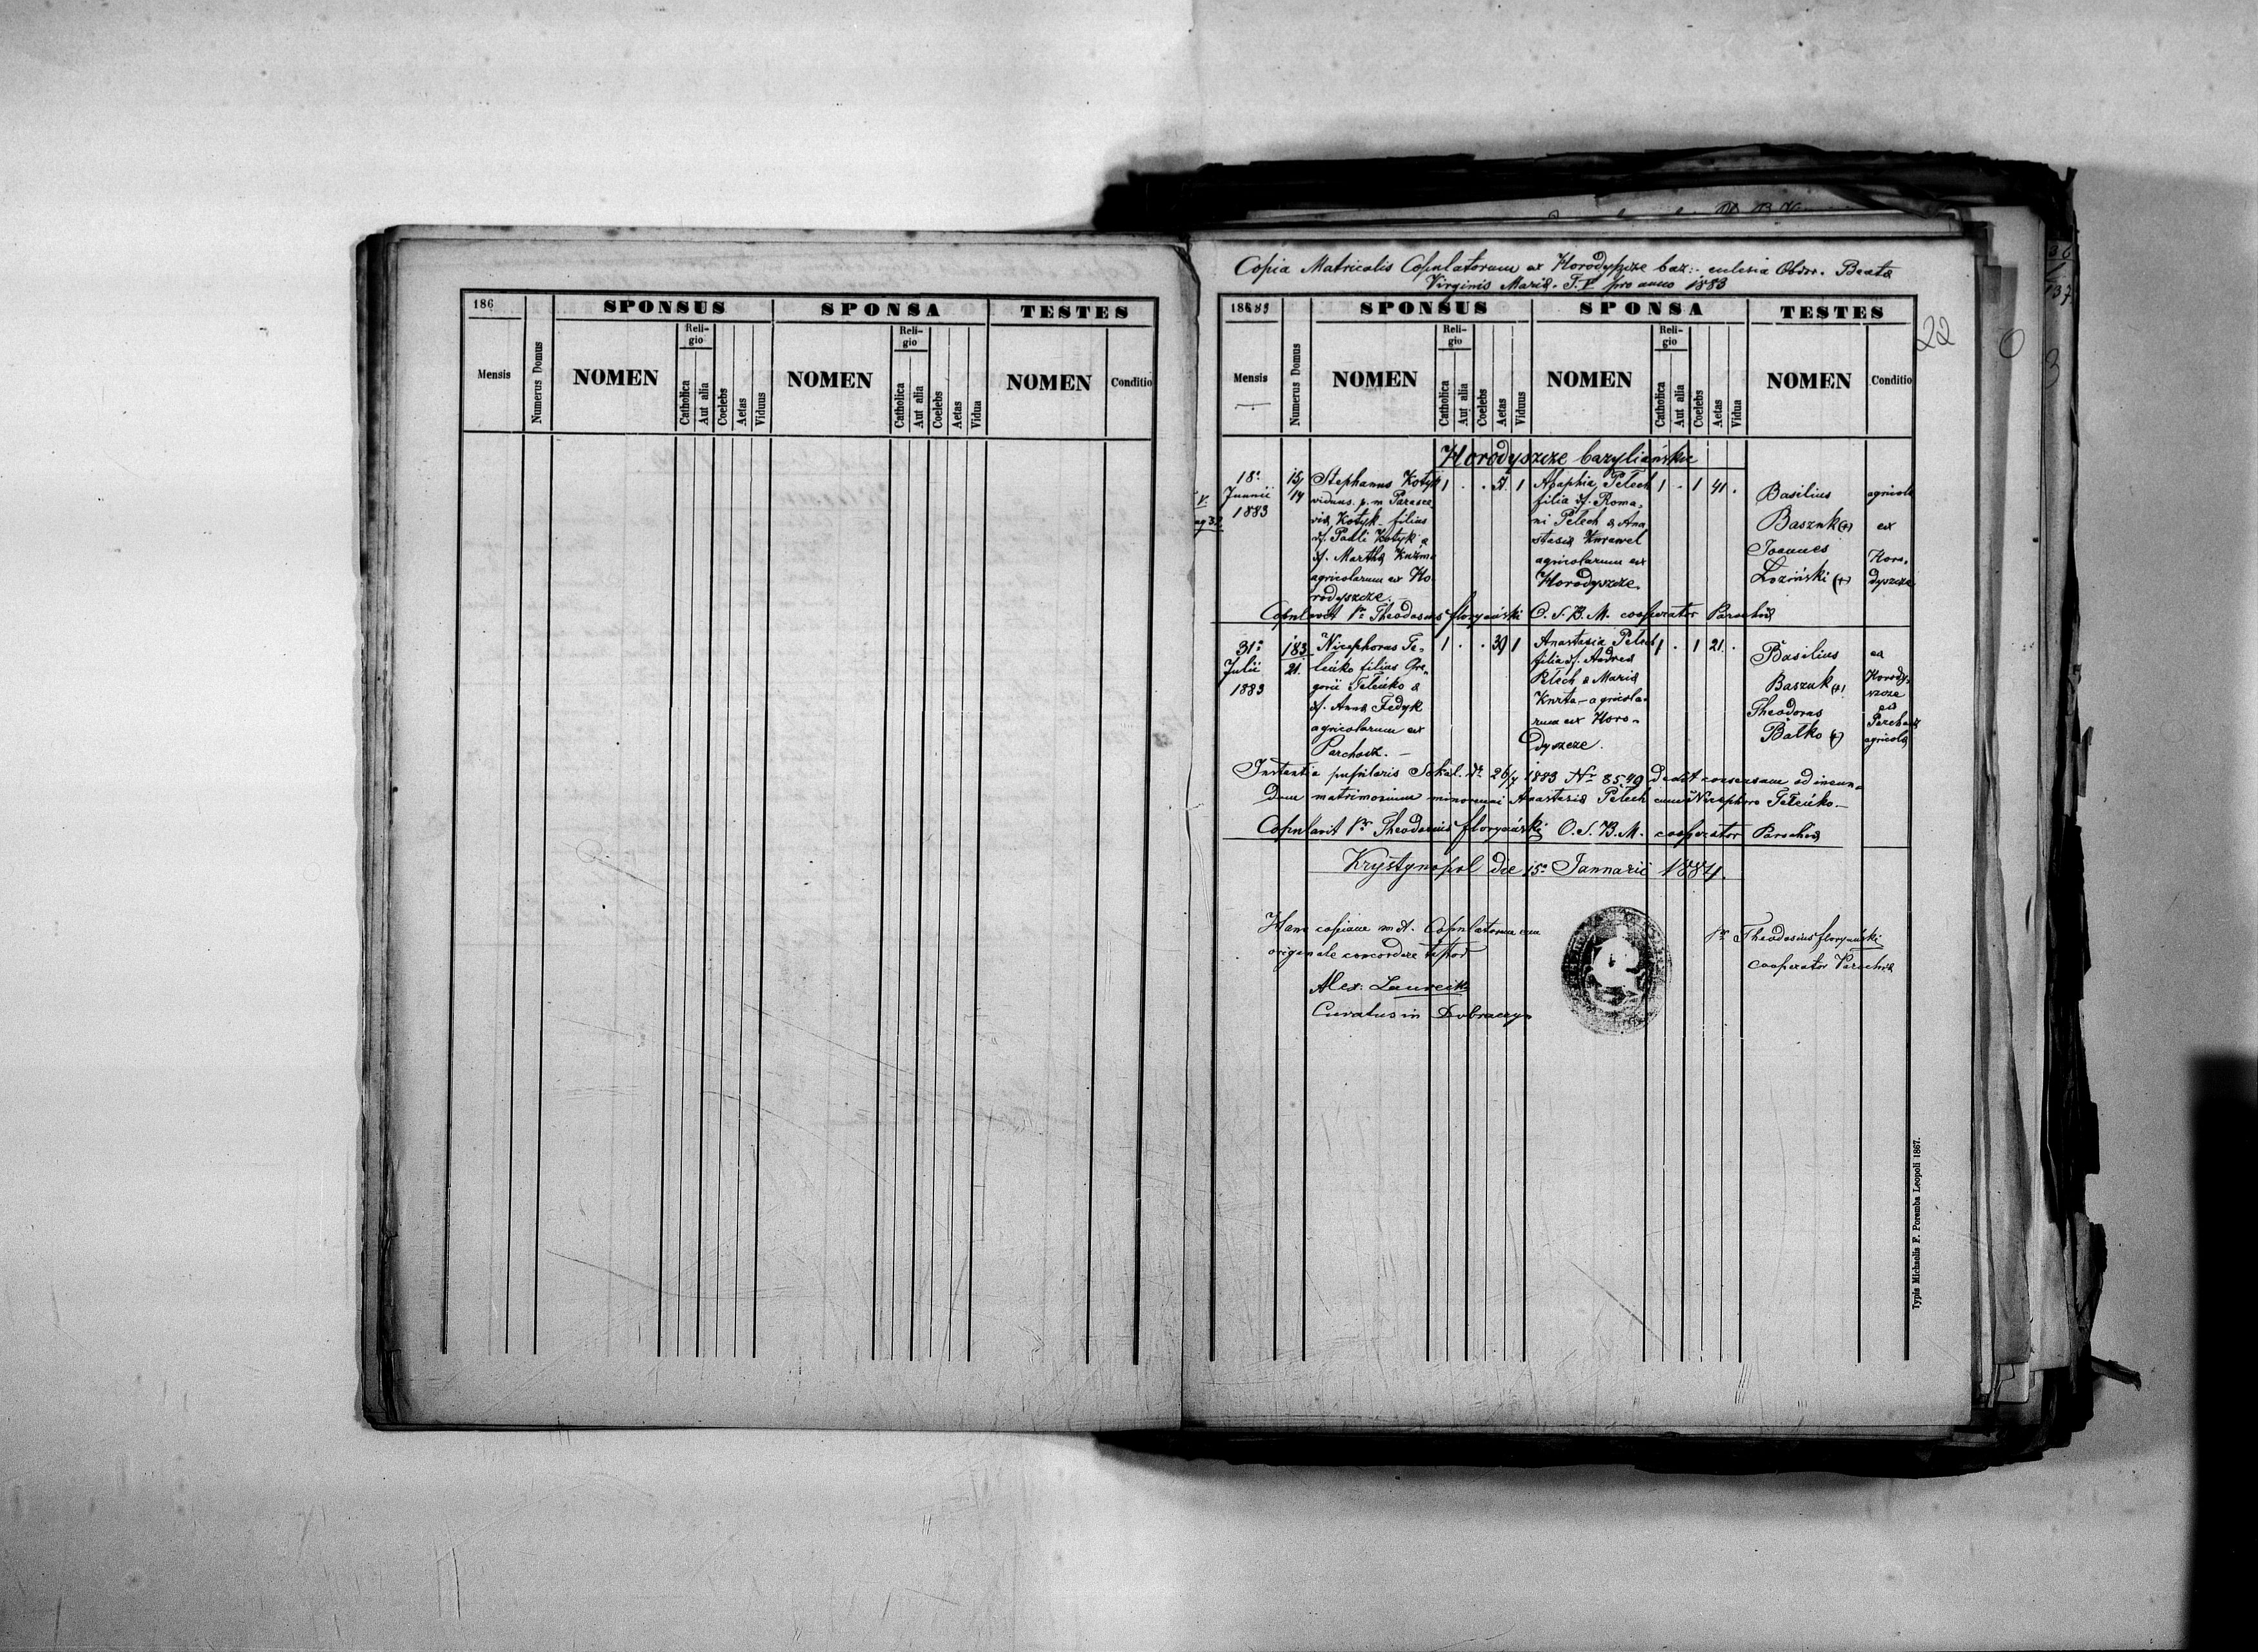 186
SPONSUS
SPONSA
TESTES
Mensis
Numerus Domus
NOMEN
Religio
Catholica
Aut alia
Coelebs
Aetas
Viduus
NOMEN
Religio
Catholica
Aut alia
Coelebs
Aetas
Vidua
NOMEN
Conditio
Copia Matricalis Copulatorum ex Horodyszcze baz: Obscr. Beatae
Virginis Mariae pro anno 1883
22
SPONSUS
SPONSA
TESTES
Mensis
Numerus Domus
NOMEN
Religio
Catholica
Aut alia
Coelebs
Aetas
Viduus
NOMEN
Religio
Catholica
Aut alia
Coelebs
Aetas
Vidua
NOMEN
Conditio
Horodyszcze bazyliańskie
18ª
Junnii
1883
15/14
Stephanus Kotyk
viduus p. m. Parasce
viae Kotyk filius
df. Pauli Kotyk &
df. Martha Kuźm
agricolarum ex Ho
rodyszcze.
1 . . 51 1
Agaphia Pełech
filia df. Roma-
ni Pełech & Ana
stasiae Kurawel
agricolarum ex
Horodyszcze.
1 . 1 41 .
Basilius
Baszuk (+)
Joannes
Łoziński (+)
agricolae
ex
Horo-
dyszcze
Copulavit Pr Theodosius Floryański O. S. B. M. cooperator Parochiae
31ª
Julii
1883
183
21.
Nicephorus Te-
leńko filius Gre-
gorii Teleńko &
df. Anna Fedyk
agricolarum ex
Parchacz. —
1 . . 39 1
Anastasia Pełech
filia df. Andreae
Pełech & Mariae
Kurta - agricola-
rum ex Horo-
dyszcze.
1 . 1 21 .
Basilius
Baszuk (+)
Theodorus
Bałko (+)
ex
Horody-
szcze
ex
Parchacz
agricolae
Instantia pupilaris Sokal. dº 26/7 1883 Nr 8549 dedit consensum ad ineun-
dum matrimonium minorenni Anastasiae Pełech cum Nicephoro Teleńko. —
Copulavit Pr Theodosius Floryański O. S. B. M. cooperator Parochiae
Krystynopol die 15ª Jannarii 1884.
Hanc copiam Copulatorum cum
originale concordare testor
Alex: Laurecik
Curatus in Dobraczyn
Pr Theodosius Floryański
cooperator Parochiae
Typis Michaelis F. Poremba Leopoli 1867.